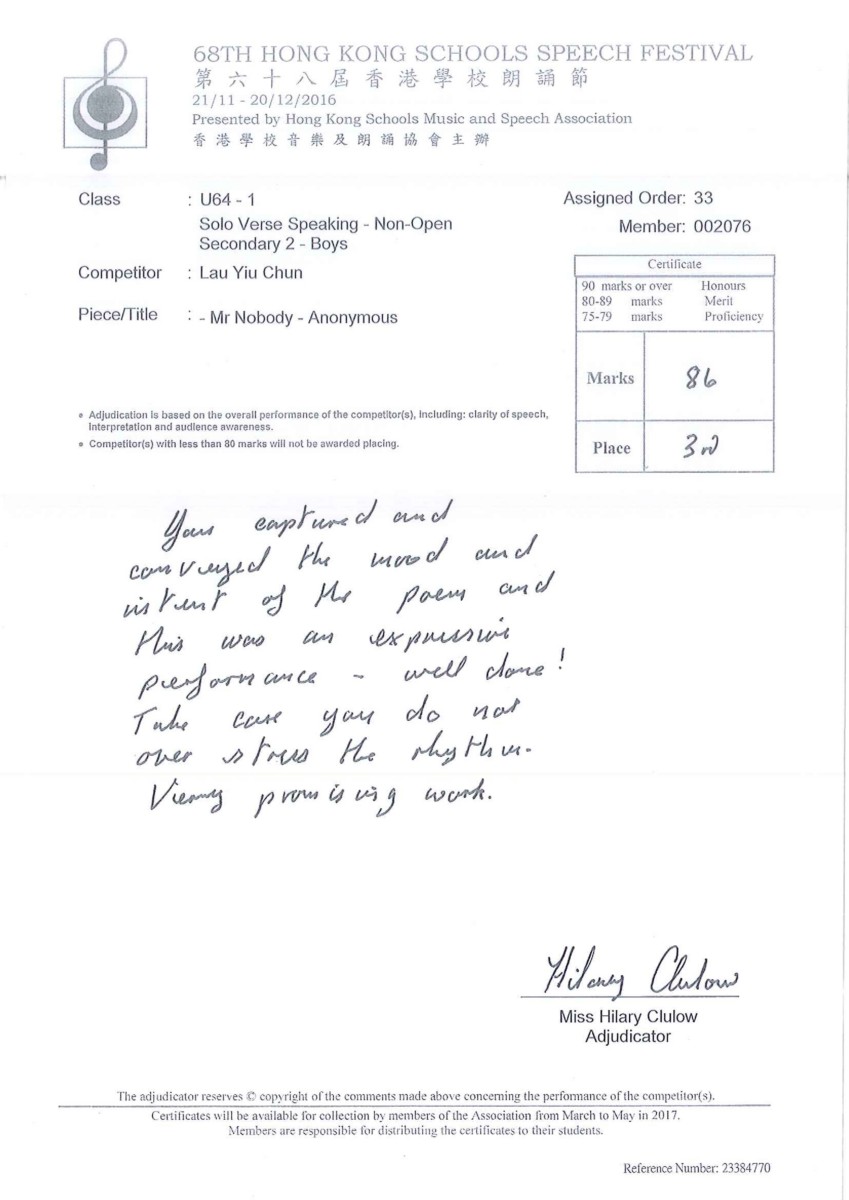 68TH HONG KONG SCHOOLS SPEECH FESTIVAL
第六十八屆香港學校朗誦節
21/11 - 20/12/2016
Presented by Hong Kong Schools Music and Speech Association
香港學校音樂及朗誦協會主辦
Class : U64 - 1
Solo Verse Speaking - Non-Open
Secondary 2 - Boys
Competitor : Lau Yiu Chun
Piece/Title : - Mr Nobody - Anonymous
Assigned Order: 33
Member: 002076
Certificate
90 marks or over Honours
80-89 marks Merit
75-79 marks Proficiency
Marks 86
Place 3rd
• Adjudication is based on the overall performance of the competitor(s), including: clarity of speech,
interpretation and audience awareness.
• Competitor(s) with less than 80 marks will not be awarded placing.
You captured and
conveyed the mood and
intent of the poem and
this was an expressive
performance - well done!
Take care you do not
over stress the rhythm.
Very promising work.
Hilary Clulow
Miss Hilary Clulow
Adjudicator
The adjudicator reserves © copyright of the comments made above concerning the performance of the competitor(s).
Certificates will be available for collection by members of the Association from March to May in 2017.
Members are responsible for distributing the certificates to their students.
Reference Number: 23384770